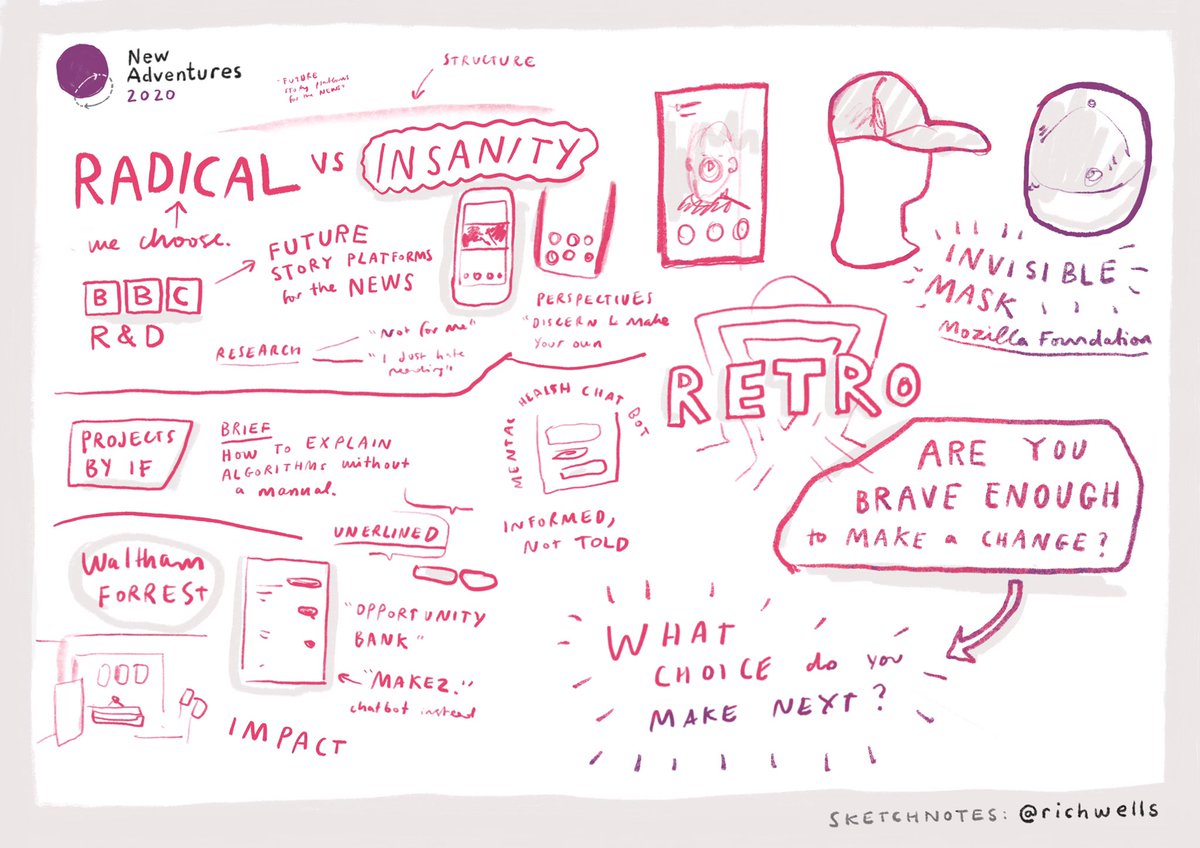 New
Adventures
2020
"FUTURE
Story Platforms
for the NEWS"
STRUCTURE
RADICAL vs INSANITY
we choose.
BBC
R & D
FUTURE
STORY PLATFORMS
for the NEWS
RESEARCH
"Not for me"
"I Just hate
reading"
PERSPECTIVES
"DISCERN & Make
Your own
INVISIBLE
MASK
Mozilla Foundation
RETRO
PROJECTS
BY IF
BRIEF
HOW TO EXPLAIN
ALGORITHMS without
a manual.
MENTAL HEALTH CHAT BOT
INFORMED,
Not TOLD
UNERLINED
Waltham
FORREST
"OPPORTUNITY
BANK"
"MAKE2."
chatbot instead
IMPACT
ARE YOU
BRAVE ENOUGH
to MAKE a CHANGE?
WHAT
CHOICE do you
MAKE NEXT?
SKETCHNOTES: @richwells